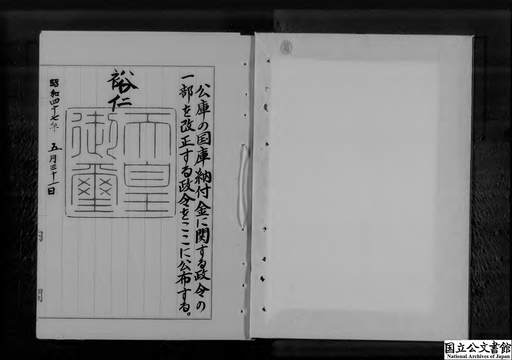 公庫の国庫納付金に関する政令の
一部を改正する政令をここに公布する。
裕仁
天皇
御璽
昭和四十七年 五月三十一日
国立公文書館
National Archives of Japan